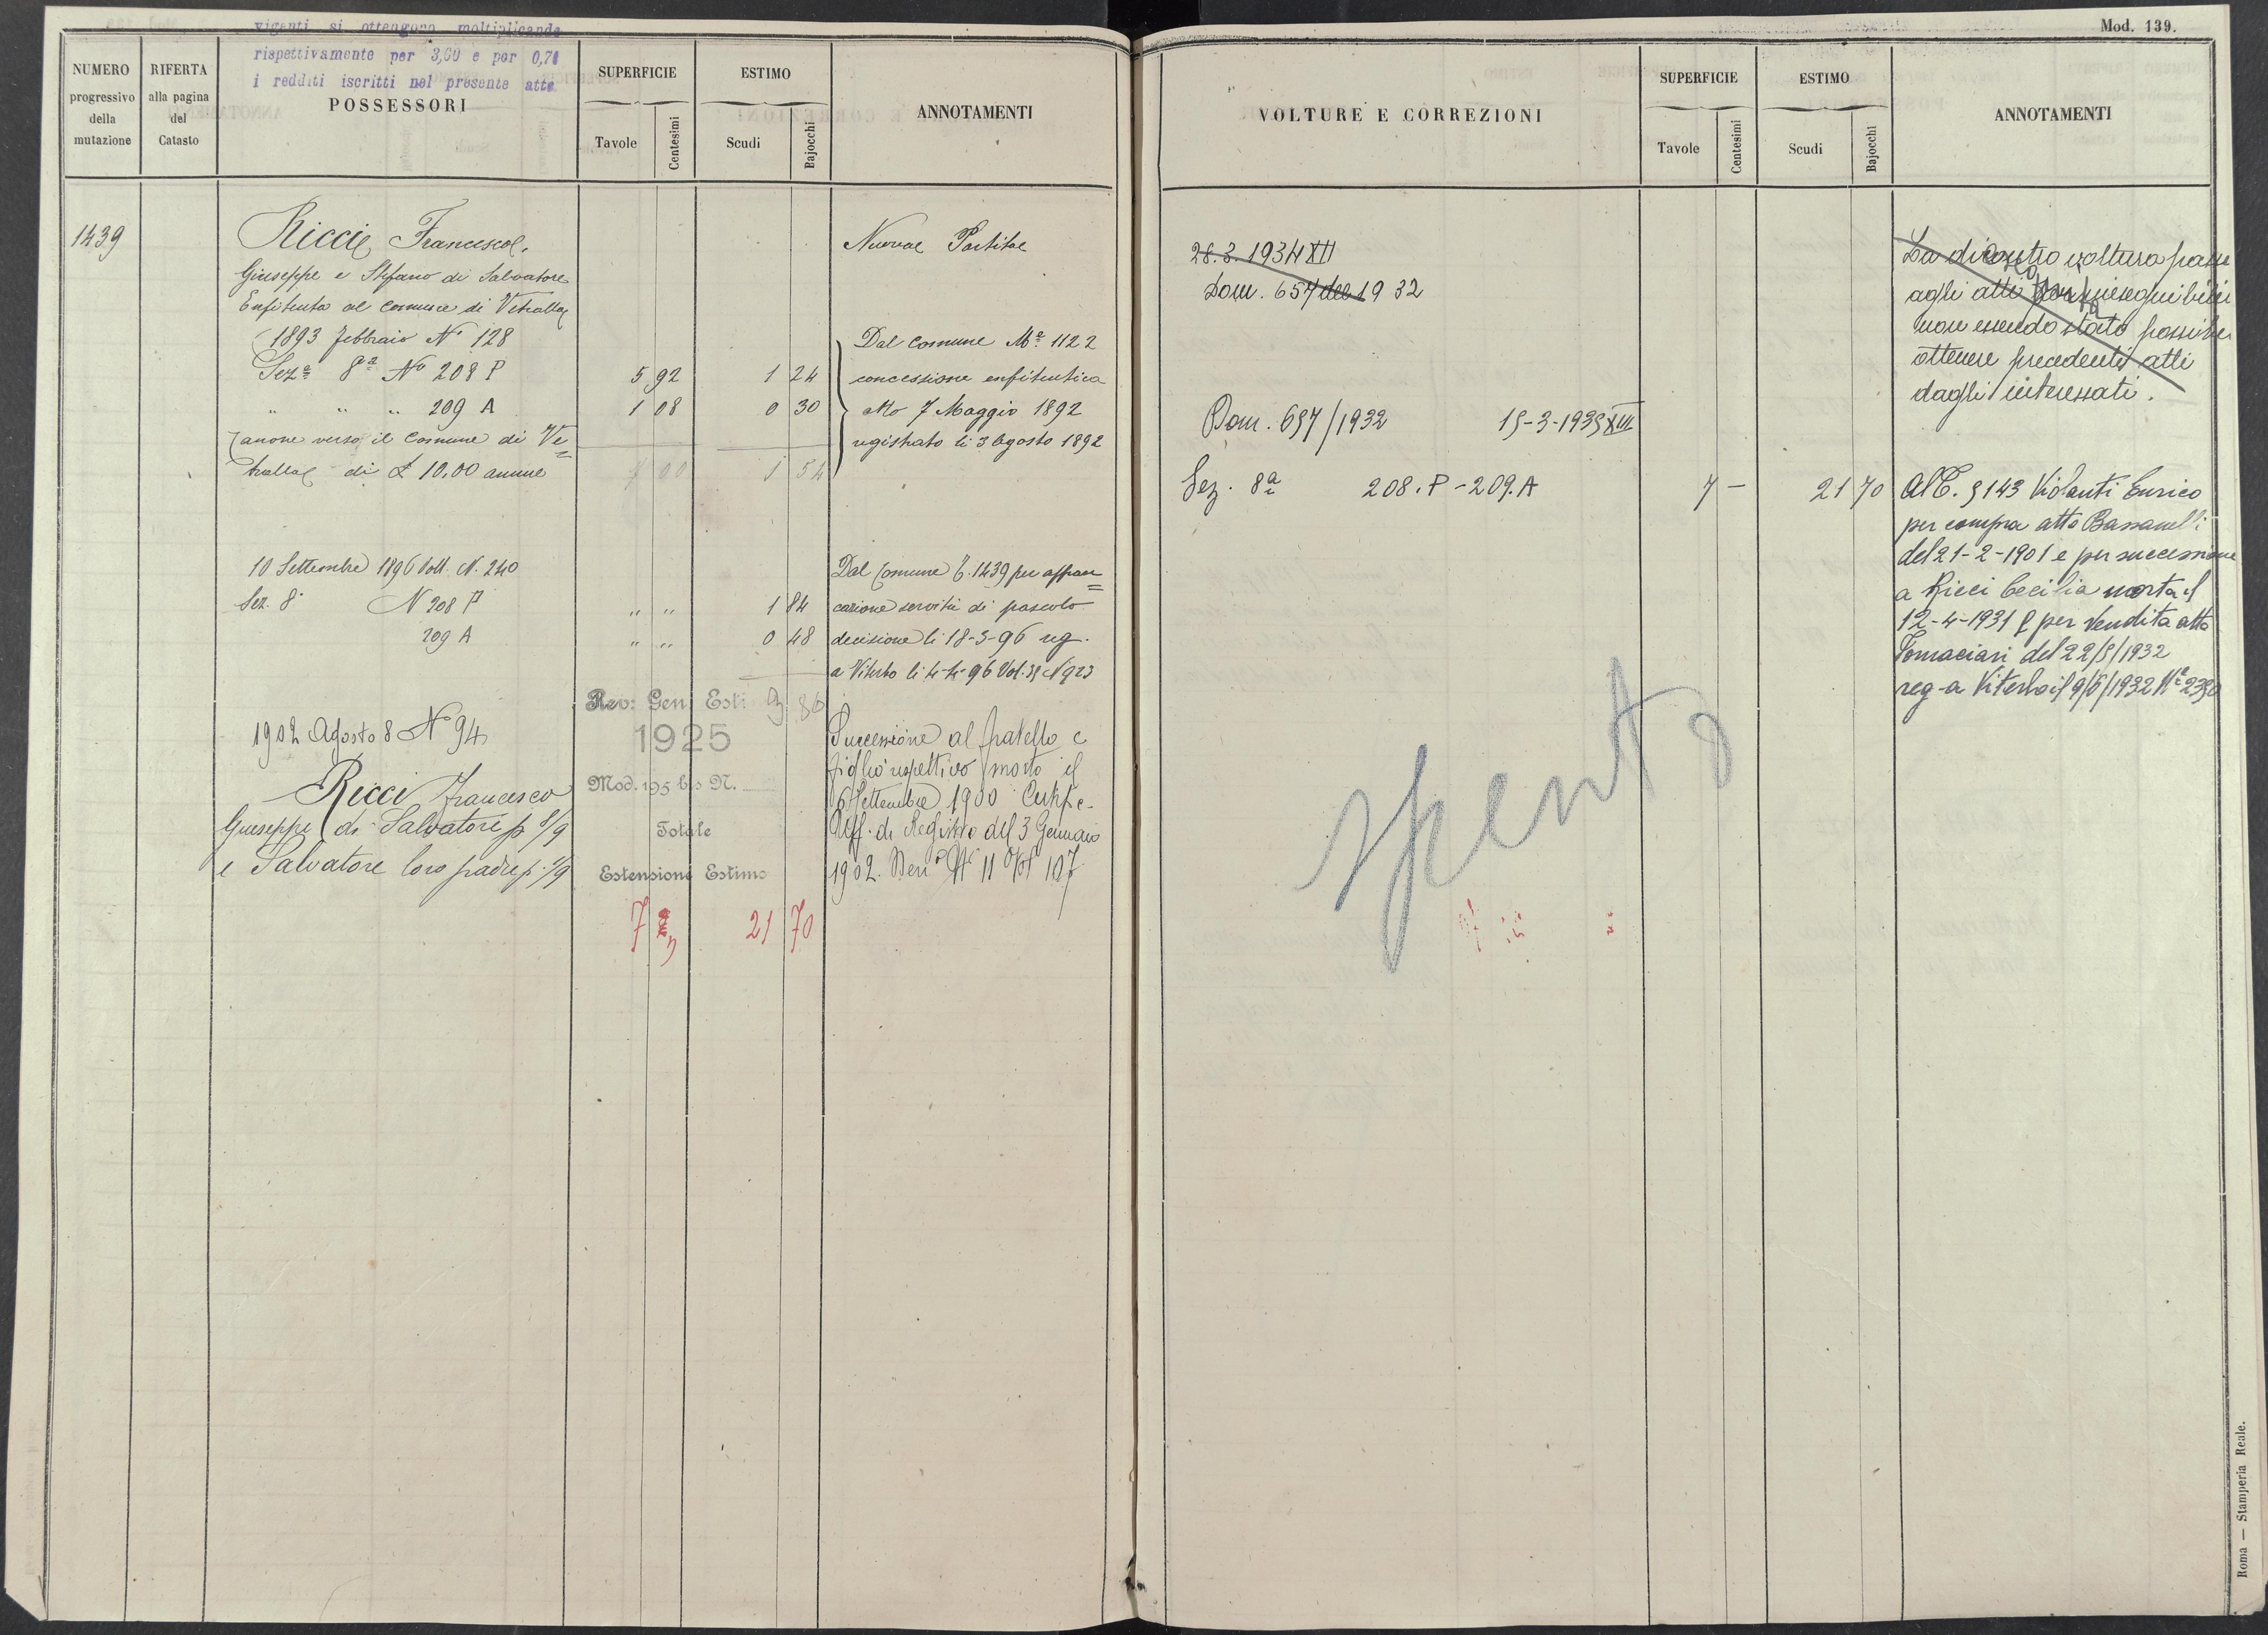 vigenti si ottengono moltiplicando
rispettivamente per 3,60 e per 0,71
i redditi iscritti nel presente atto
NUMERO progressivo della mutazione
RIFERTA alla pagina del Catasto
POSSESSORI
SUPERFICIE
Tavole Centesimi
ESTIMO
Scudi Bajocchi
ANNOTAMENTI
1439
Ricci Francesco,
Giuseppe e Stefano di Salvatore
Enfiteuta al Comune di Vetralla
1893 Febbraio Nº 128
Seza 8a Nº 208 P 5 92 1 24
" " " 209 A 1 08 0 30
Canone verso il Comune di Ve=
tralla di £ 10,00 annue 7 00 1 54
Nuova Partita
Dal Comune Ma 1122
concessione enfiteutica
atto 7 Maggio 1892
registrato li 3 Agosto 1892
10 Settembre 1896 Volt. N. 240
Sez. 8a N 208 P " " 1 84
209 A " " 0 48
Dal Comune 1439 per affran=
cazione servitù di pascolo
decisione li 18-3-96 reg.
a Viterbo li 4-4-96 Vol. 31 N 923
Rev: Gen Esti 3 86
1925
Mod. 195 bis N.
Totale
Estensione Estimo
7 21 70
1902 Agosto 8 Nº 94
Ricci Francesco
Giuseppe di Salvatore p 8/9
e Salvatore loro padre p. 1/9
Successione al fratello e
figlio rispettivo morto il
6 Settembre 1900
Uff. di Registro del 3 Gennaio
1902. Nº 11 Vol 107
Mod. 139.
VOLTURE E CORREZIONI
SUPERFICIE
Tavole Centesimi
ESTIMO
Scudi Bajocchi
ANNOTAMENTI
28.3.1934 XII
Dom. 657 del 1932
La dicontro voltura passa
agli atti ineseguibili
non essendo stato possibile
ottenere precedenti atti
dagli interessati.
Dom. 657/1932 15-3-1935 XIII
Sez. 8a 208.P - 209.A 7 - 21 70
Al C. 5143 Violanti Enrico
per compra atto Bassanelli
del 21-2-1901 e per successione
a Ricci Cecilia morta il
12-4-1931 e per vendita atto
Tomaciari del 22/5/1932
reg-a Viterbo il 9/6/1932
spento
Roma — Stamperia Reale.